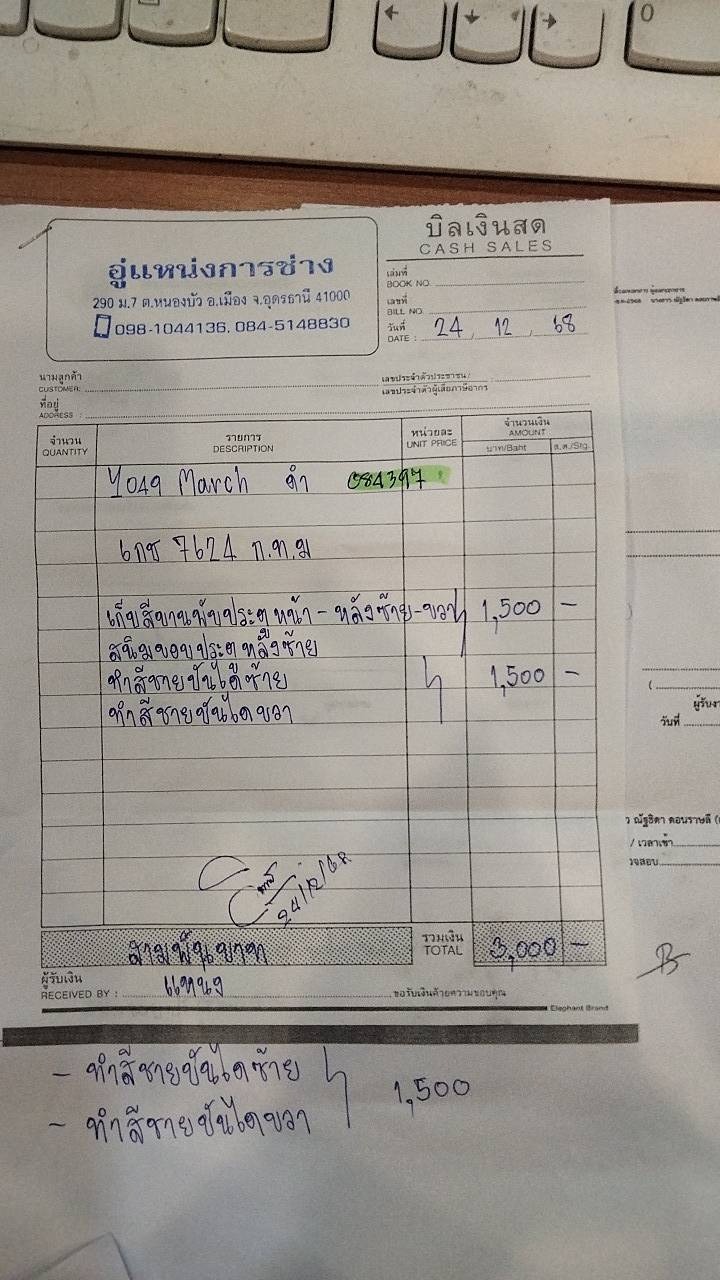 0
บิลเงินสด
CASH SALES
อู่แหน่งการช่าง
290 ม.7 ต.หนองบัว อ.เมือง จ.อุดรธานี 41000
098-1044136, 084-5148830
เล่มที่
BOOK NO.
เลขที่
BILL NO.
วันที่
DATE : 24, 12, 68
นามลูกค้า
CUSTOMER:
เลขประจำตัวประชาชน/
เลขประจำตัวผู้เสียภาษีอากร
ที่อยู่
ADDRESS :
จำนวน
QUANTITY
รายการ
DESCRIPTION
หน่วยละ
UNIT PRICE
จำนวนเงิน
AMOUNT
บาท/Baht
ส.ต./Stg.
4049 March ดำ 084397
เกช 7624 ก.ท.ม
เก็บสีบานพับประตูหน้า - หลังซ้าย-ขวา 1,500 -
สนิมขอบประตูหลังซ้าย
ทำสีชายบันไดซ้าย 1,500 -
ทำสีชายบันไดขวา
24/12/68
สามพันบาท
รวมเงิน
TOTAL
3,000 -
ผู้รับเงิน
RECEIVED BY : แหน่ง
ขอรับเงินด้วยความขอบคุณ
Elephant Brand
- ทำสีชายบันไดซ้าย
- ทำสีชายบันไดขวา
1,500
ผู้รับงา
วันที่
ว ณัฐธิดา ดอนราษลี (
/ เวลาเข้า
วจสอบ